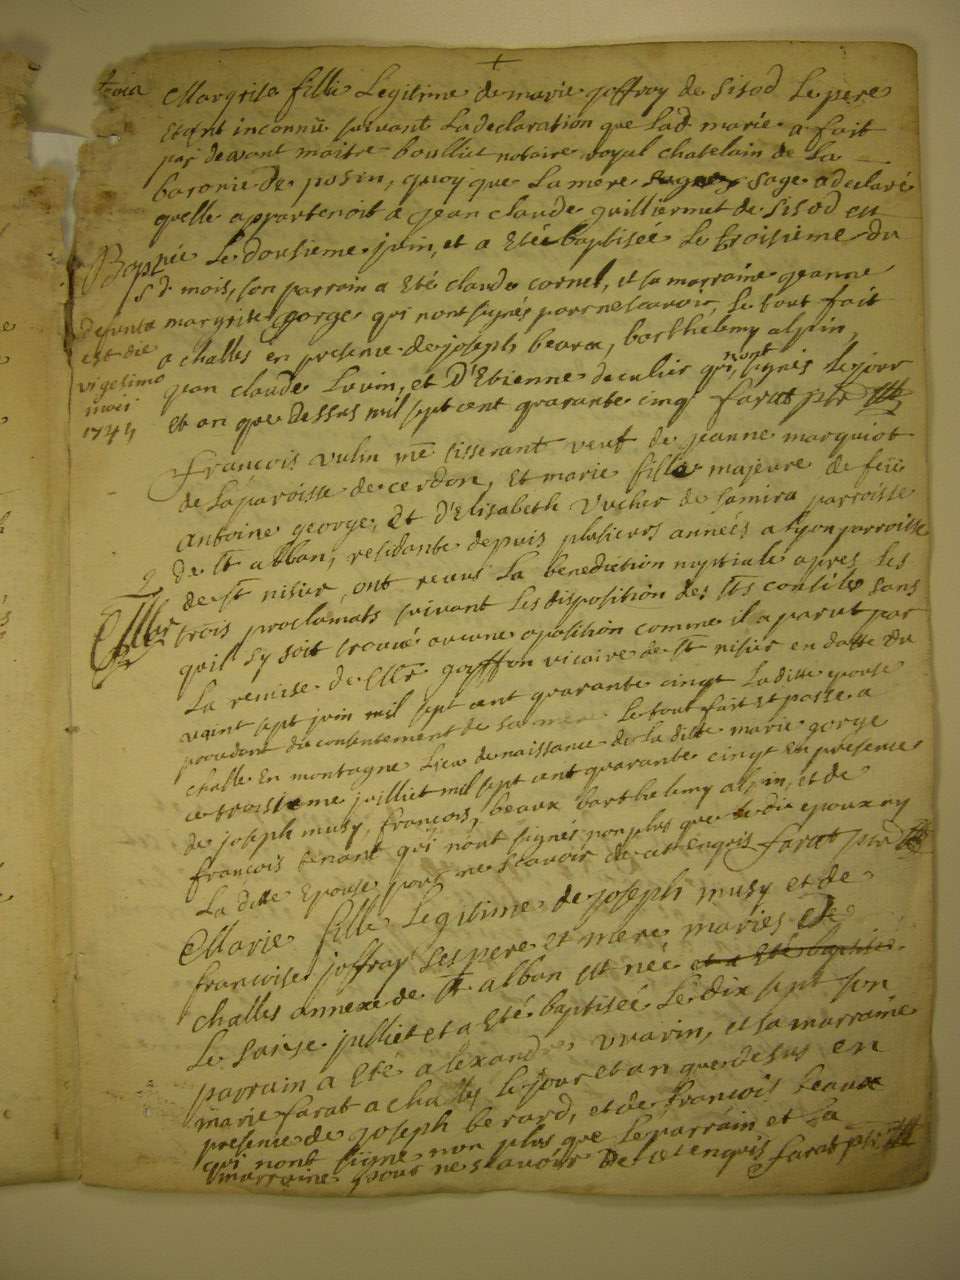 troia
Margrita fille Legitime de marie joffroy de Sisod Le pere
Etant inconnü suivant La declaration que Lad. marie a fait
par devant maitre boulliet notaire royal chatelain de La
baronie de posin, quoy que La mere sage a declaré
quelle appartenoit a jean claude guilliermet de Sisod est
Bapt
née Le dousieme juin, et a Eté baptisée Le troisieme du
sd mois, son parrain a Eté claude cornel, et sa marraine jeanne
defunta
est die
vigesimo
1745
margrite george qui nont signés pour ne scavoir, Le tout fait
a challes en presence de joseph beaux, barthelemy alpin,
jean claude Luvin, et D'Etienne deculier qui nont signés Le jour
et an que dessus mil sept cent quarante cinq farat ptr
françois vulin me tisserant veuf de jeanne marquiot
de La paroisse de cerdon, Et marie fille majeure de feü
antoine george, Et d'Elisabeth vucher de Samira parroisse
de St alban, residante depuis plusieurs années a Lyon parroisse
de St nisier, ont receus La benediction nuptiale apres Les
Mar
trois proclamats suivant Les disposition des Sts conciles sans
quil sy soit trouvé aucune oposition comme il a parut par
La remise de Mr goyffon vicaire de St nisier en datte du
vaint sept juin mil sept cent quarante cinqt La ditte epouse
procedant du consentement de sa mere Le tout fait et passé a
challe En montagne Lieu de naissance de La ditte marie gorge
ce troisieme juilliet mil sept cent quarante cinqt En presence
de joseph musy, françois beaux barthelemy alpin, et de
françois tenant qui nont signés non plus que Le dit epoux ny
La ditte Epouse pour ne scavoir de ce enquis farat ptr
Marie fille Legitime de joseph musy et de
françoise joffray ses pere et mere mariés de
challes annexe de St alban est née et a Eté baptisée
Le saise julliet et a Eté baptisée Le dix sept son
parrain a Eté alexandre vuarin, et sa marraine
marie farat a challes Le jour et an que desus en
presence de joseph berard, et de françois beaux
qui nont signé non plus que Le parrain et La
marraine pour ne scavoir de ce enquis farat ptr